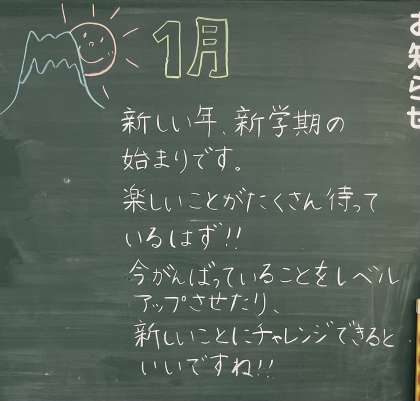 お知らせ
1月
新しい年、新学期の
始まりです。
楽しいことがたくさん待って
いるはず!!
今がんばっていることをレベル
アップさせたり、
新しいことにチャレンジできると
いいですね!!